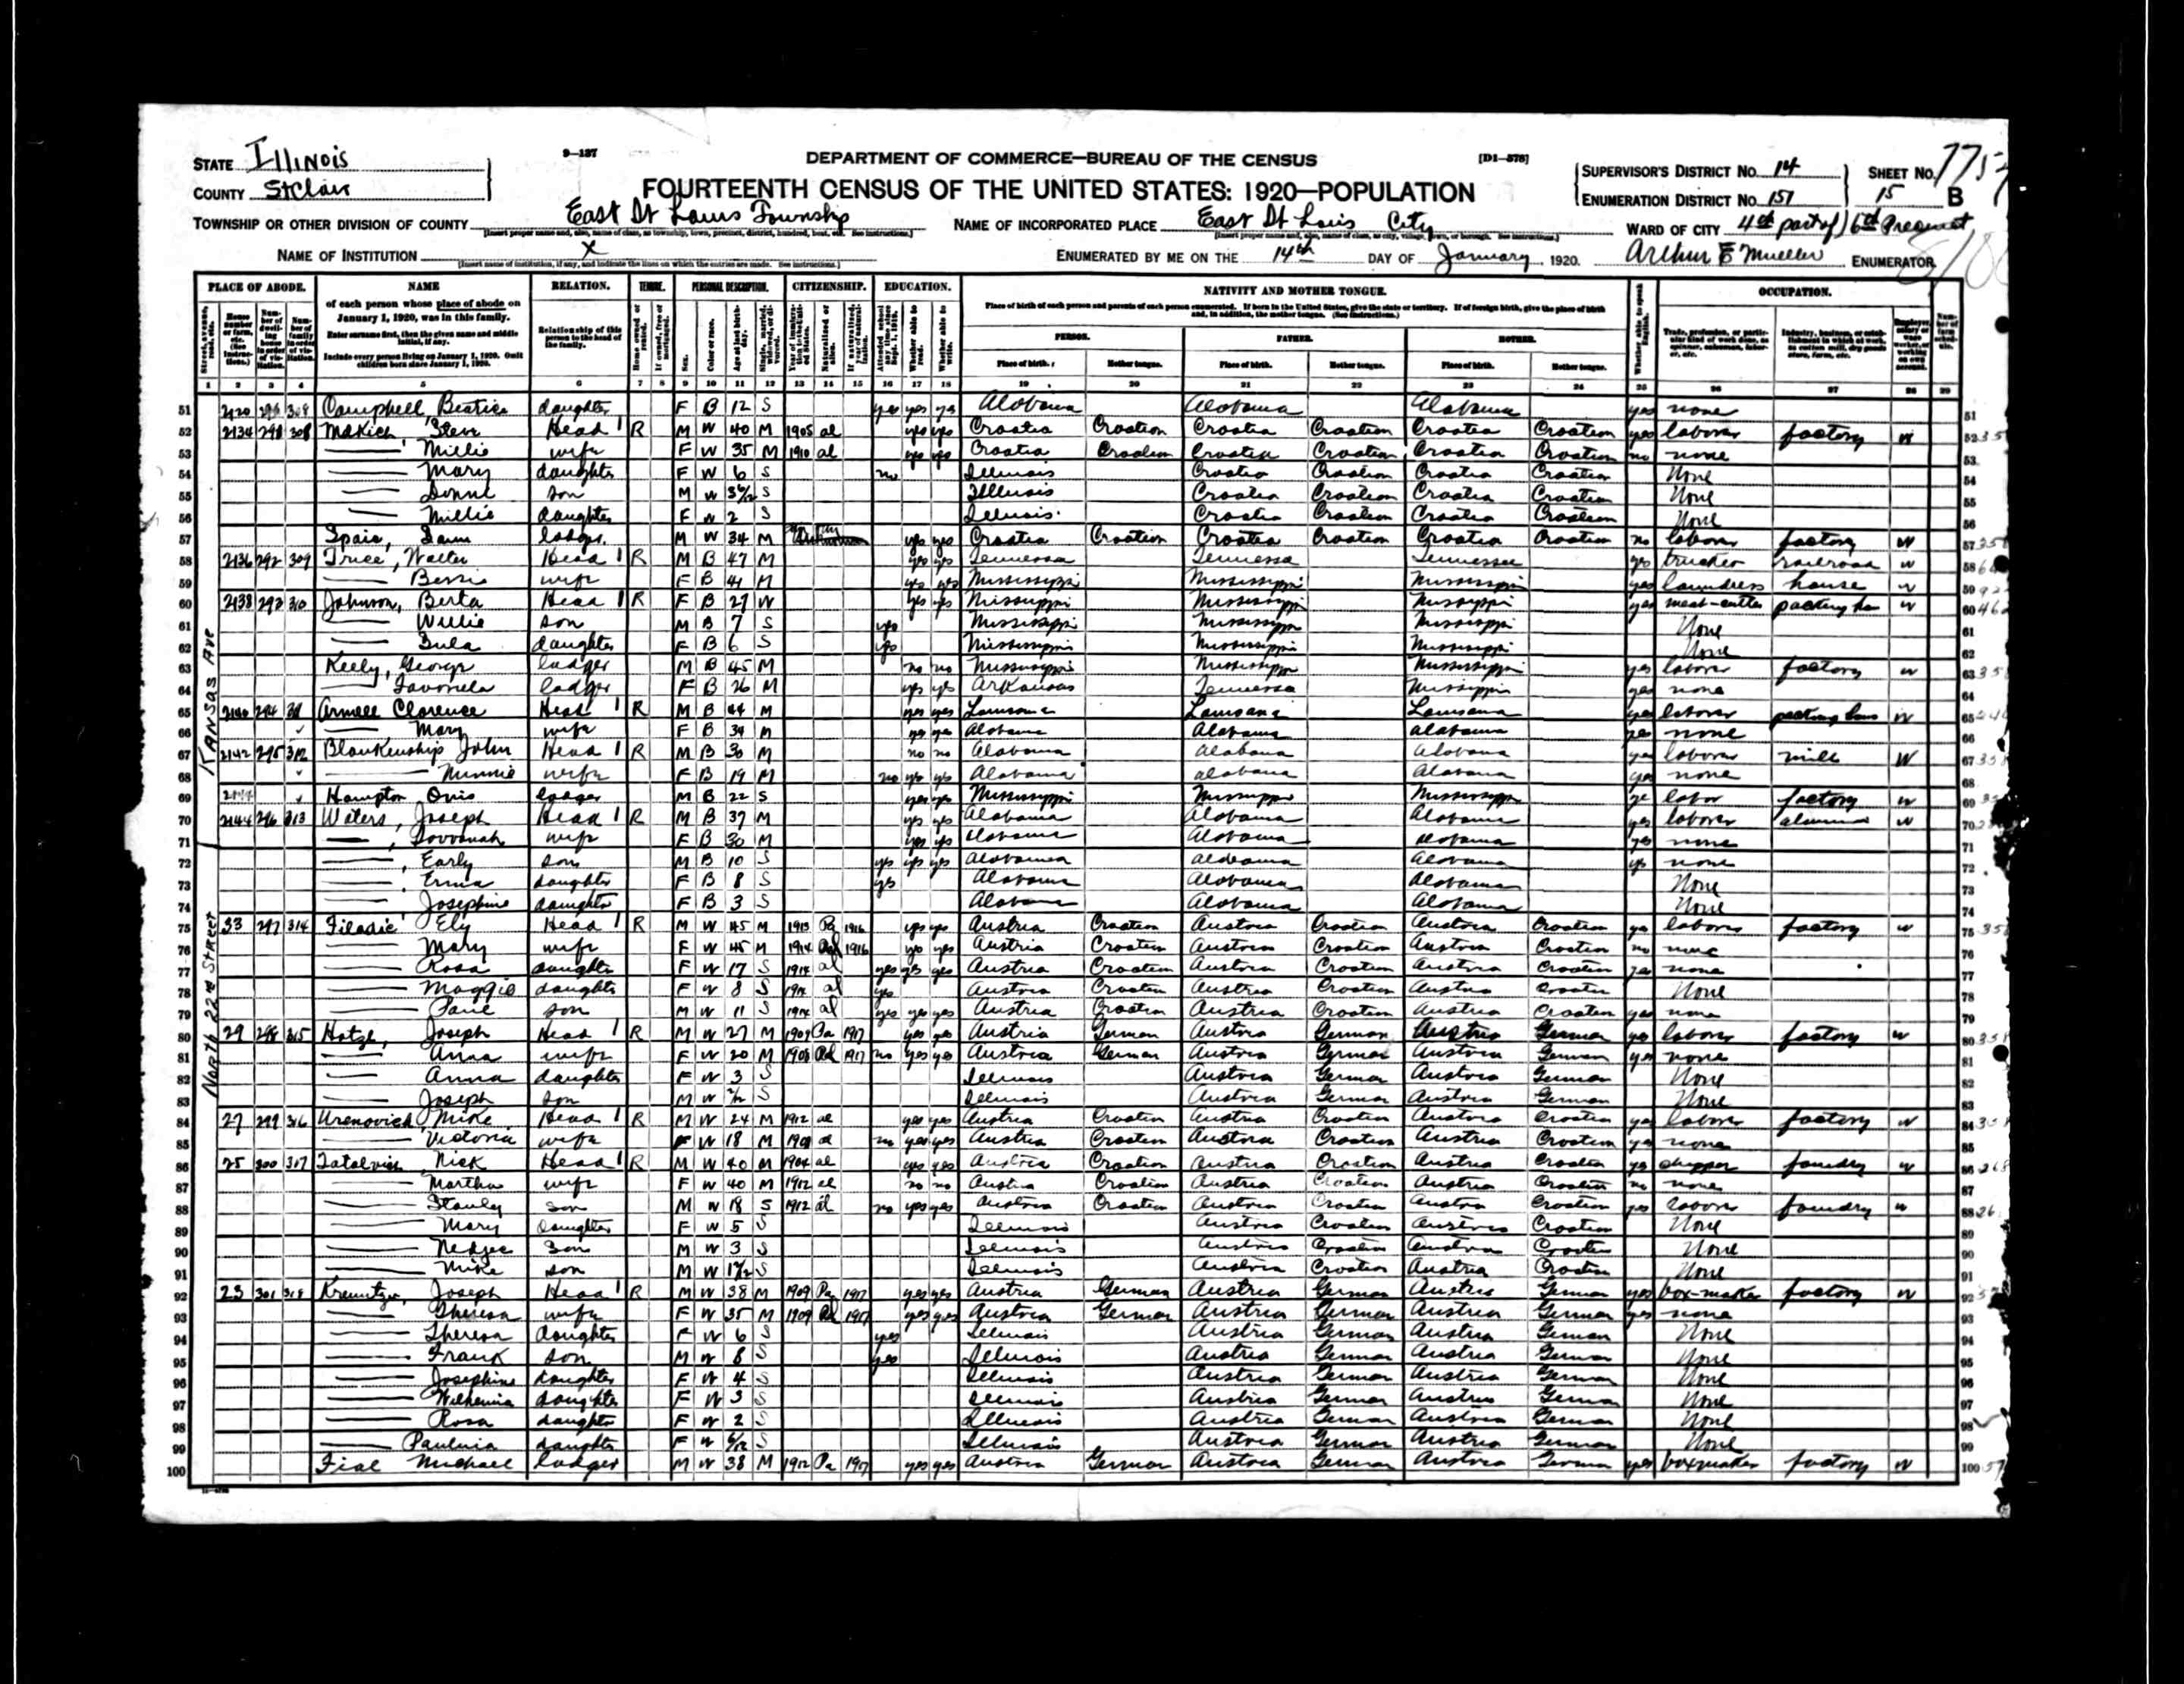 STATE Illinois
9-137
DEPARTMENT OF COMMERCE—BUREAU OF THE CENSUS
[D1-578]
SUPERVISOR'S DISTRICT No. 14
SHEET No.
COUNTY St Clair
FOURTEENTH CENSUS OF THE UNITED STATES: 1920—POPULATION
ENUMERATION DISTRICT No. 151
15 B
TOWNSHIP OR OTHER DIVISION OF COUNTY East St Louis Township
NAME OF INCORPORATED PLACE East St Louis City
WARD OF CITY 4th part of) 6th Precinct
NAME OF INSTITUTION X
ENUMERATED BY ME ON THE 14th DAY OF January, 1920. Arthur E Mueller ENUMERATOR
PLACE OF ABODE. NAME RELATION. TENURE. PERSONAL DESCRIPTION. CITIZENSHIP. EDUCATION. NATIVITY AND MOTHER TONGUE. OCCUPATION.
of each person whose place of abode on January 1, 1920, was in this family.
Enter surname first, then the given name and middle initial, if any.
Include every person living on January 1, 1920. Omit children born since January 1, 1920.
Relationship of this person to the head of the family.
Place of birth of each person and parents of each person enumerated. If born in the United States, give the state or territory. If of foreign birth, give the place of birth and, in addition, the mother tongue. (See instructions.)
PERSON. FATHER. MOTHER.
Place of birth. Mother tongue. Place of birth. Mother tongue. Place of birth. Mother tongue.
1 2 3 4 5 6 7 8 9 10 11 12 13 14 15 16 17 18 19 20 21 22 23 24 25 26 27 28 29
KANSAS AVE
51 2120 Campbell, Beatrice daughter F B 12 S yes yes yes Alabama Alabama Alabama yes none 51
52 2134 308 Steve Head 1 R M W 40 M 1905 al yes yes Croatia Croatian Croatia Croatian Croatia Croatian yes laborer factory W 52
53 Millie wife F W 35 M 1910 al yes yes Croatia Croatian Croatia Croatian Croatia Croatian no none 53
54 Mary daughter F W 6 S no Illinois Croatia Croatian Croatia Croatian None 54
55 son M W S Illinois Croatia Croatian Croatia Croatian None 55
56 Millie daughter F W 2 S Illinois Croatia Croatian Croatia Croatian None 56
57 lodger M W 34 M yes yes Croatia Croatian Croatia Croatian Croatia Croatian no laborer factory W 57
58 2136 292 309 Trice, Walter Head 1 R M B 47 M yes yes Tennessee Tennessee Tennessee yes trucker railroad W 58
59 Bessie wife F B 41 M yes yes Mississippi Mississippi Mississippi yes laundress house W 59
60 2138 293 310 Johnson, Berta Head 1 R F B 27 W yes yes Mississippi Mississippi Mississippi yes meat-cutter packing ho W 60
61 Willie son M B 7 S yes Mississippi Mississippi Mississippi None 61
62 Zula daughter F B 6 S yes Mississippi Mississippi Mississippi None 62
63 Keely, George lodger M B 45 M no no Mississippi Mississippi Mississippi yes laborer factory W 63
64 lodger F B 26 M yes yes Arkansas Tennessee Mississippi yes none 64
65 2140 294 311 Clarence Head 1 R M B 44 M yes yes Louisiana Louisiana Louisiana yes laborer packing hous W 65
66 Mary wife F B 34 M yes yes Alabama Alabama Alabama yes none 66
67 2142 295 312 Blankenship John Head 1 R M B 30 M no no Alabama Alabama Alabama yes laborer mill W 67
68 Minnie wife F B 19 M no yes yes Alabama Alabama Alabama yes none 68
69 Hampton Ovis lodger M B 22 S yes yes Mississippi Mississippi Mississippi labor factory W 69
70 2144 296 313 Waters, Joseph Head 1 R M B 37 M yes yes Alabama Alabama Alabama yes laborer W 70
71 Savvanah wife F B 30 M yes yes Alabama Alabama Alabama yes none 71
72 Early son M B 10 S yes yes yes Alabama Alabama Alabama yes none 72
73 Erma daughter F B 8 S yes Alabama Alabama Alabama None 73
74 Josephine daughter F B 3 S Alabama Alabama Alabama None 74
NORTH 22nd STREET
75 33 297 314 Filadic Ely Head 1 R M W 45 M 1913 Pa 1916 yes yes Austria Croatian Austria Croatian Austria Croatian yes laborer factory W 75
76 Mary wife F W 45 M 1914 1916 yes yes Austria Croatian Austria Croatian Austria Croatian no none 76
77 Rosa daughter F W 17 S 1914 al yes yes yes Austria Croatian Austria Croatian Austria Croatian yes none 77
78 Maggie daughter F W 8 S 1914 al yes Austria Croatian Austria Croatian Austria Croatian None 78
79 son M W 11 S 1914 al yes yes yes Austria Croatian Austria Croatian Austria Croatian yes none 79
80 29 298 315 Hotzl, Joseph Head 1 R M W 27 M 1909 Pa 1917 yes yes Austria German Austria German Austria German yes laborer factory W 80
81 Anna wife F W 20 M 1908 1917 no yes yes Austria German Austria German Austria German yes none 81
82 Anna daughter F W 3 S Illinois Austria German Austria German None 82
83 Joseph son M W S Illinois Austria German Austria German None 83
84 27 299 316 Urenovich Mike Head 1 R M W 24 M 1912 al yes yes Austria Croatian Austria Croatian Austria Croatian yes laborer factory W 84
85 Victoria wife F W 18 M al no yes yes Austria Croatian Austria Croatian Austria Croatian yes none 85
86 25 300 317 Nick Head 1 R M W 40 M 1904 al yes yes Austria Croatian Austria Croatian Austria Croatian yes chipper foundry W 86
87 Martha wife F W 40 M 1912 al no no Austria Croatian Austria Croatian Austria Croatian no none 87
88 Stanley son M W 18 S 1912 al no yes yes Austria Croatian Austria Croatian Austria Croatian yes laborer foundry W 88
89 Mary daughter F W 5 S Illinois Austria Croatian Austria Croatian None 89
90 son M W 3 S Illinois Austria Croatian Austria Croatian None 90
91 Mike son M W S Illinois Austria Croatian Austria Croatian None 91
92 23 301 318 Joseph Head 1 R M W 38 M 1909 Pa 1917 yes yes Austria German Austria German Austria German yes box-maker factory W 92
93 Theresa wife F W 35 M 1909 1917 yes yes Austria German Austria German Austria German yes none 93
94 Theresa daughter F W 6 S yes Illinois Austria German Austria German None 94
95 Frank son M W 8 S yes Illinois Austria German Austria German None 95
96 Josephine daughter F W 4 S Illinois Austria German Austria German None 96
97 Wilhemina daughter F W 3 S Illinois Austria German Austria German None 97
98 Rosa daughter F W 2 S Illinois Austria German Austria German None 98
99 Paulinia daughter F W S Illinois Austria German Austria German None 99
100 Michael lodger M W 38 M 1912 Pa 1917 yes yes Austria German Austria German Austria German yes boxmaker factory W 100